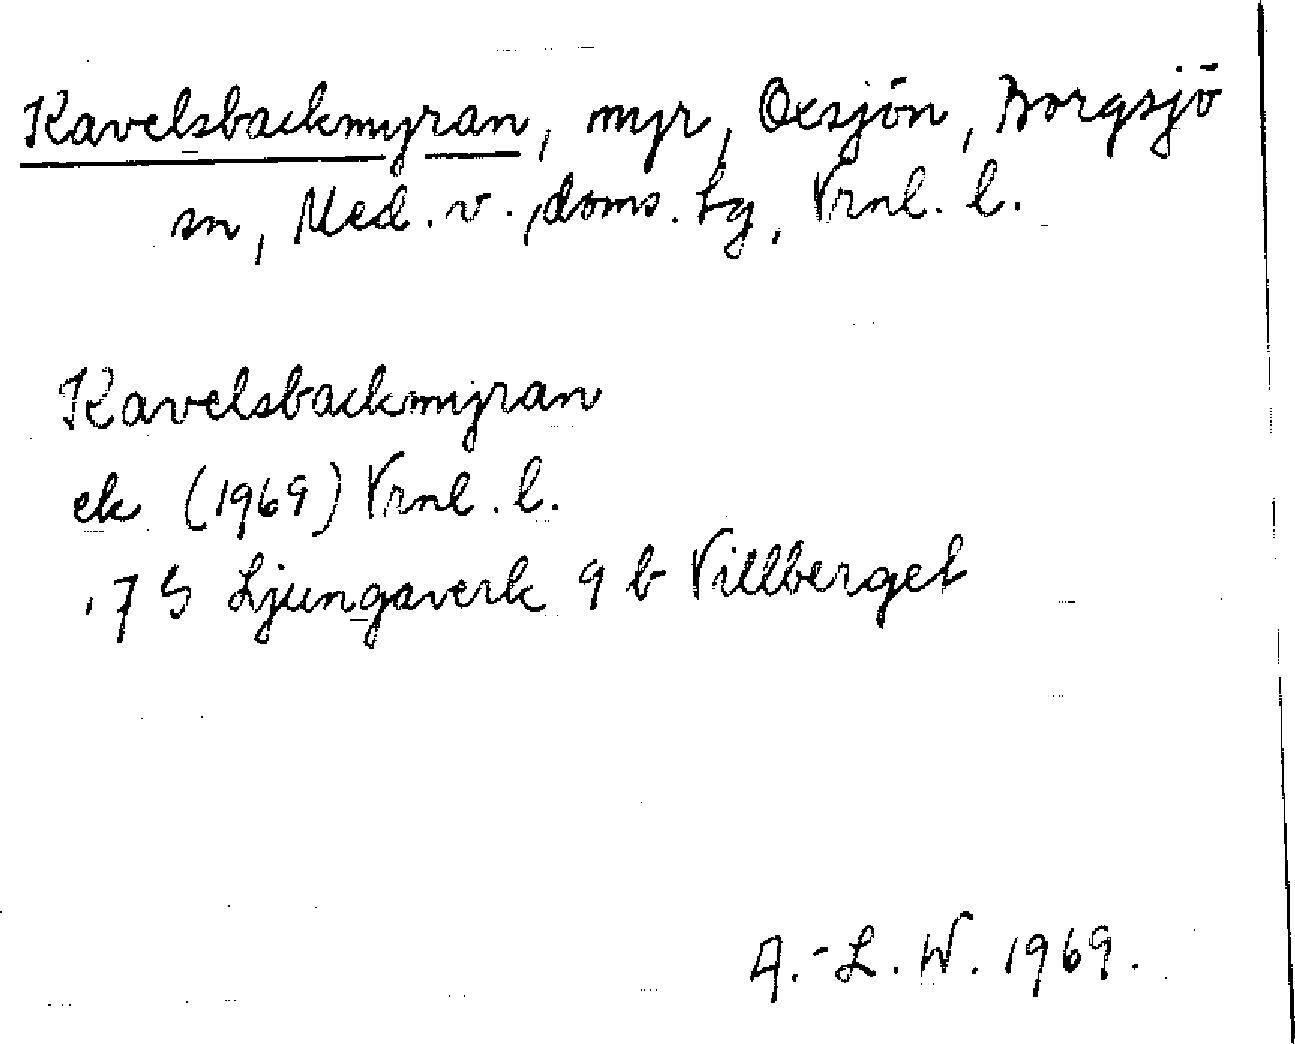 Kavelsbackmyran, myr, Oxsjön, Borgsjö
sn, Med. v. doms. tg, Vrnl. l.
Kavelsbackmyran
ek (1969) Vrnl. l.
17 G Ljungaverk 9 b Villberget
A.-L. W. 1969.